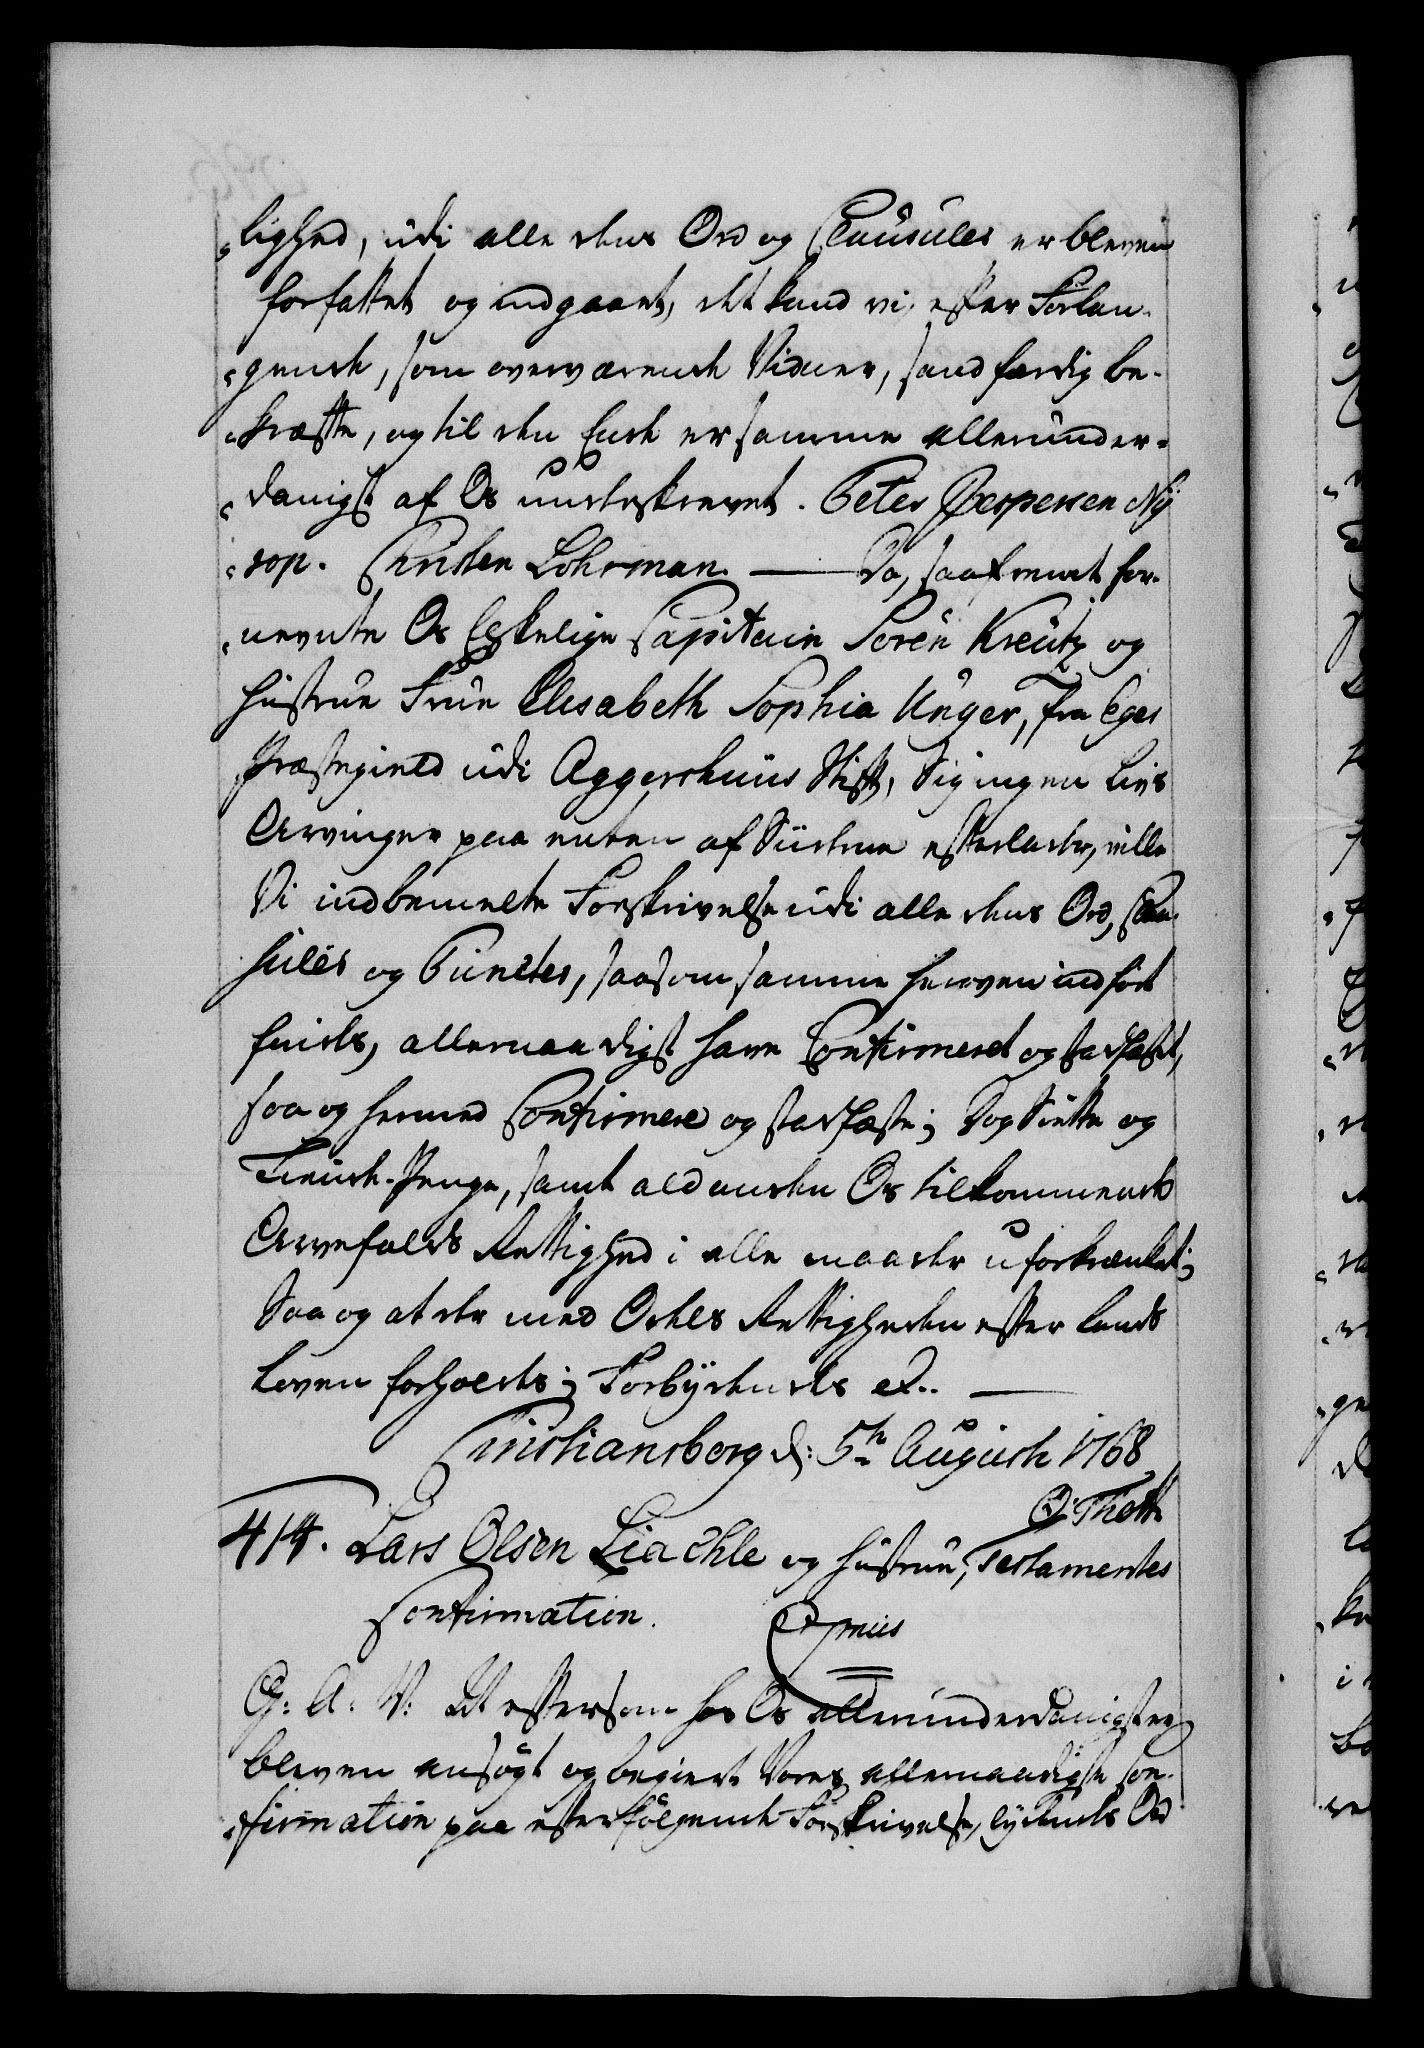 lighed, udi alle dens Ord og Clausules er bleven
forfattet og indgaaet, det kand vi, efter Forlan-
gende, som overværende Vidner, sandfærdig be-
kræfte, og til den Ende er samme allerunder-
danigst af Os underskrevet. Peter Jespersen Ny
rop. Christen Lohrman. — Da, saafremt for-
nevnte Os Elskelige Capitain Sørén Kreütz og
Hustrue Frue Elisabeth Sophia Unger, fra Eger
Præstegield udi Aggershuus Stift, Sig ingen Livs
Arvinger paa enten af Siiderne efterlader, ville
Vi indbemelte Forskrivelse udi alle dens Ord, Clau-
sules og Puncter, saasom samme heroven indført
findes, allernaadigst have Confirmeret og stadfæstet,
saa og hermed Confirmere og stadfæste; Dog Siette og
Tiende-Penge, samt ald anden Os tilkommende
Arvefalds Rettighed i alle maader uforkrænket;
Saa og at der med Odels Rettigheden efter Lands
Loven forholdes; Forbydendes etc. —
Christiansborg d: 5te Augusti 1768
O: Thott
414. Lars Olsen Liachle og Hustrue, Testamentes
Confirmation.
G: A: V: At eftersom hos Os allerunderdanigst er
bleven ansøgt og begiert Vores allernaadigste Con-
firmation paa efterfølgende Forskrivelse, lydendes Ord